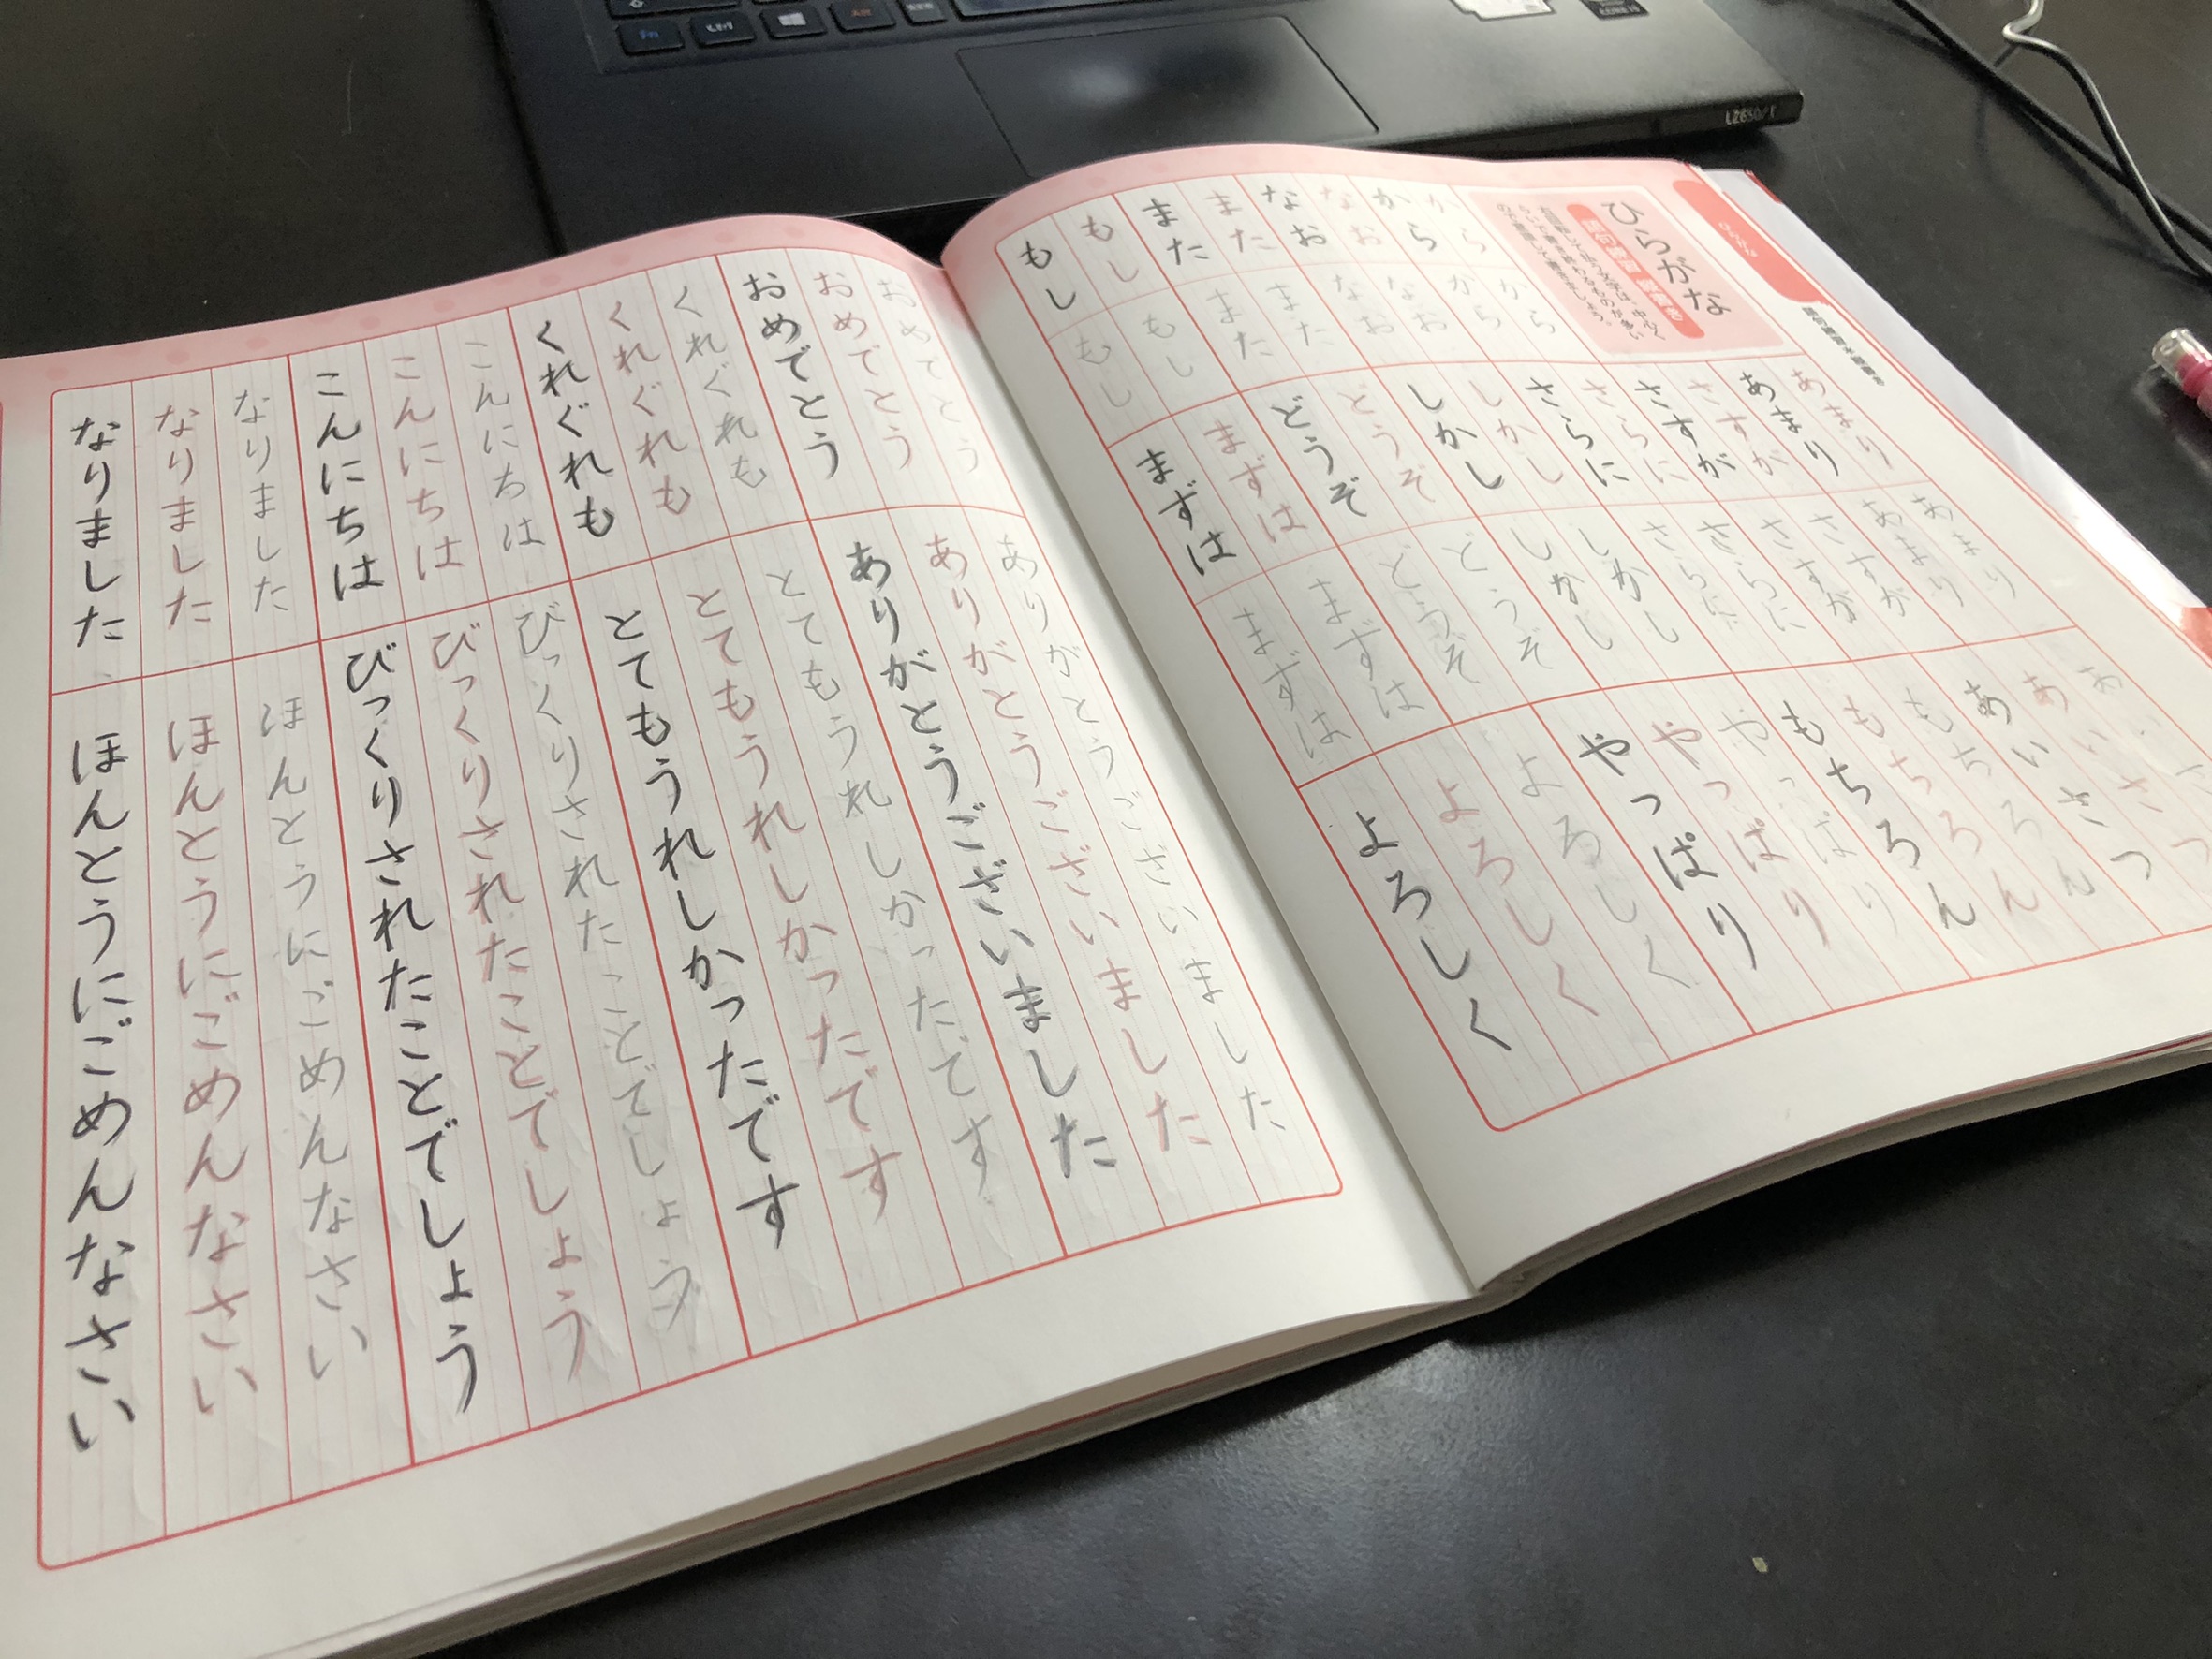 ひらがな
から
から
から
から
なお
なお
なお
なお
また
また
また
また
もし
もし
もし
もし
あまり
あまり
あまり
あまり
さすが
さすが
さすが
さすが
さらに
さらに
さらに
さらに
しかし
しかし
しかし
しかし
どうぞ
どうぞ
どうぞ
どうぞ
まずは
まずは
まずは
まずは
あいさつ
あいさつ
もちろん
もちろん
もちろん
やっぱり
やっぱり
やっぱり
よろしく
よろしく
よろしく
おめでとう
おめでとう
おめでとう
くれぐれも
くれぐれも
くれぐれも
こんにちは
こんにちは
こんにちは
なりました
なりました
なりました
ありがとうございました
ありがとうございました
ありがとうございました
とてもうれしかったです
とてもうれしかったです
とてもうれしかったです
びっくりされたことでしょう
びっくりされたことでしょう
びっくりされたことでしょう
ほんとうにごめんなさい
ほんとうにごめんなさい
ほんとうにごめんなさい
Fn